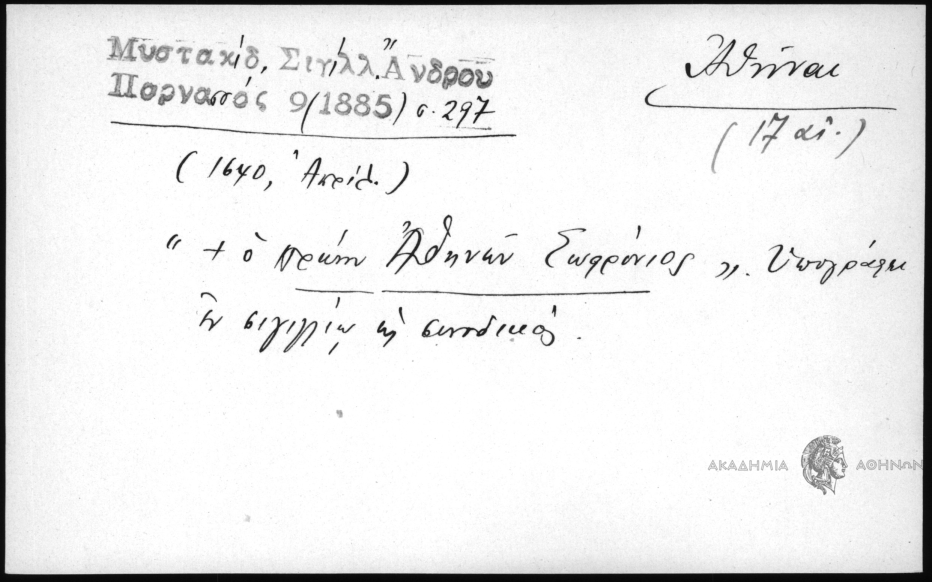 Μυστακίδ, Σιγίλλ. Ἄνδρου
Παρνασσός 9 (1885) σ. 297
Ἀθῆναι
(17 αἰ.)
(1640, Ἀπρίλ.)
" + ὁ πρώην Ἀθηνῶν Σωφρόνιος ". Ὑπογράφει
ἐν σιγιλλίῳ ὡς συνοδικός.
ΑΚΑΔΗΜΙΑ ΑΘΗΝΩΝ